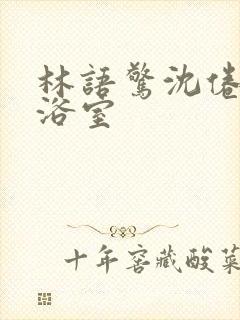 林語驚沈倦
浴室
十年窖藏酸菜